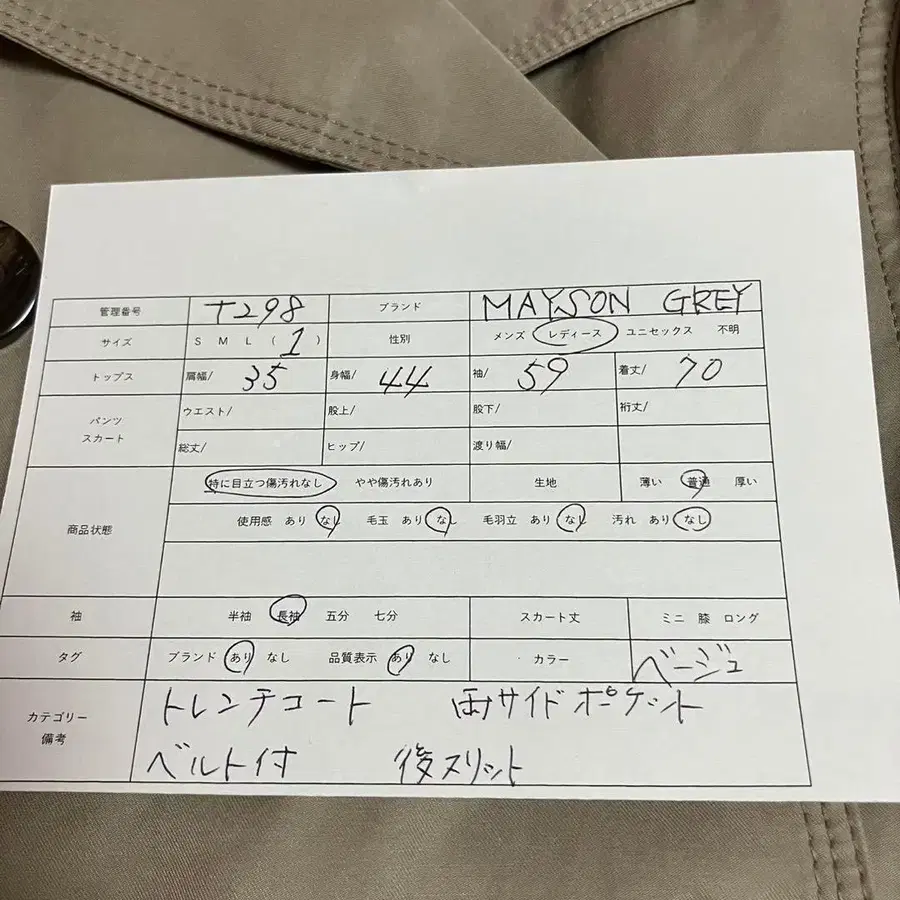 管理番号 T298 ブランド MAYSON GREY
サイズ S M L ( 1 ) 性別 メンズ レディース ユニセックス 不明
トップス 肩幅/ 35 身幅/ 44 袖/ 59 着丈/ 70
パンツ スカート ウエスト/ 股上/ 股下/ 裄丈/
総丈/ ヒップ/ 渡り幅/
商品状態 特に目立つ傷汚れなし やや傷汚れあり 生地 薄い 普通 厚い
使用感 あり なし 毛玉 あり なし 毛羽立 あり なし 汚れ あり なし
袖 半袖 長袖 五分 七分 スカート丈 ミニ 膝 ロング
タグ ブランド あり なし 品質表示 あり なし カラー ベージュ
カテゴリー 備考 トレンチコート 両サイドポケット
ベルト付 後スリット